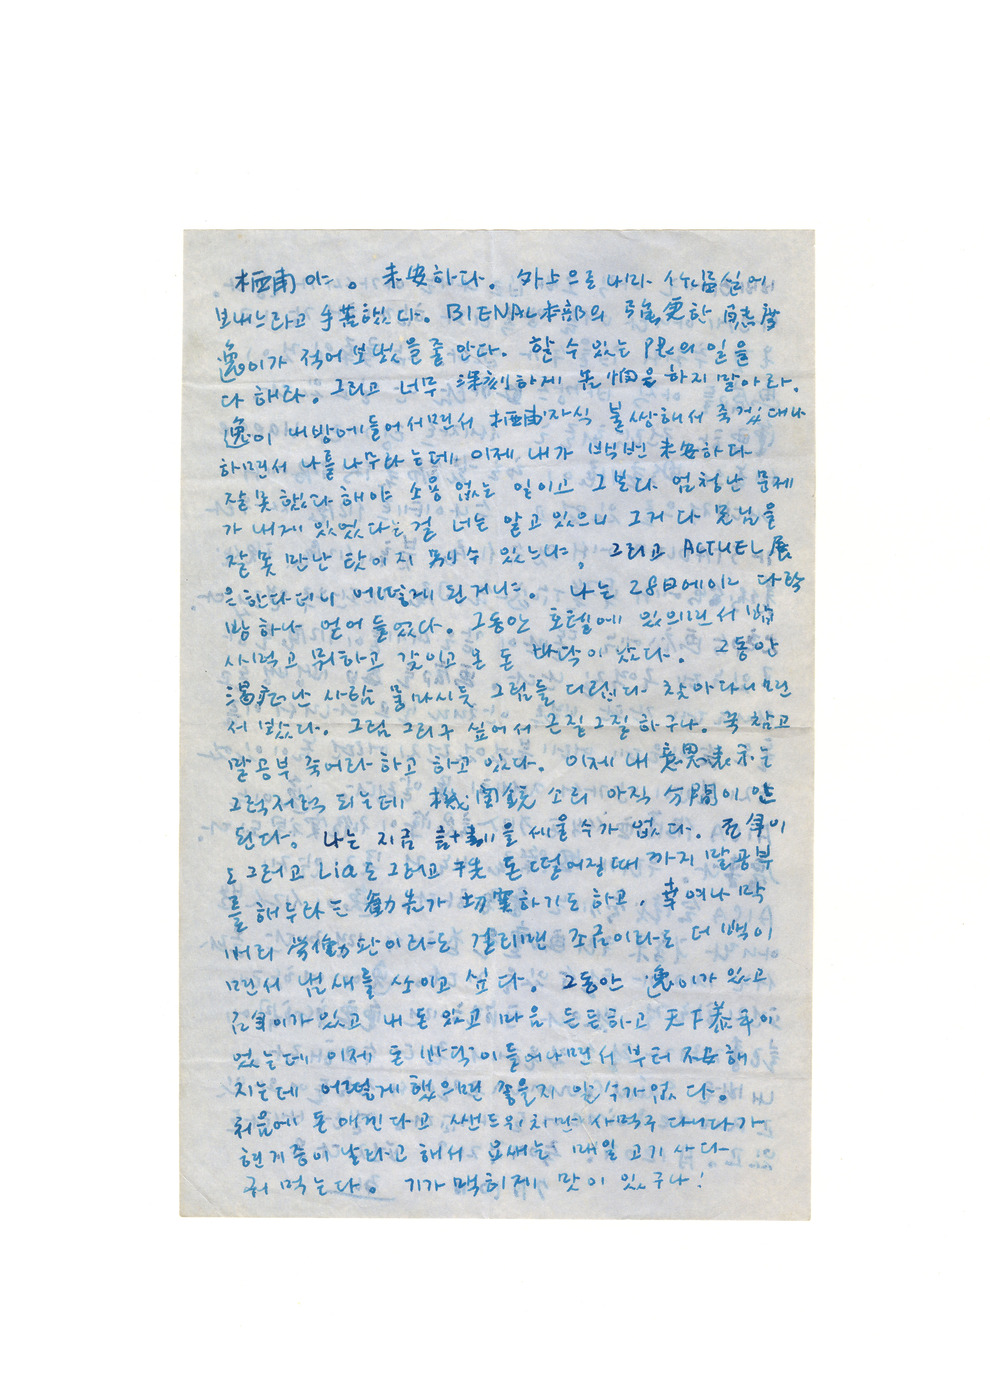 栖甫야。 未安하다。 外上으로
보내느라고 手苦했다。 BIENAL 本部의
逸이가 적어 보냈을줄 안다。 할 수 있는 限의 일을
다 해라。 그리고 너무 深刻하게 苦悶을 하지 말아라。
逸이 내방에 들어서면서 栖甫자식 불쌍해서 죽겠대나
하면서 나를 나무라는데 이제 내가 백번 未安하다
잘못했다 해야 소용 없는 일이고 그보다 엄청난 문제
가 내게 있었다는걸 너는 알고 있으니 그게 다 兄님을
잘못 만난 탓이지 할수 있느냐。 그리고 ACTUEL展
은 한다더니 어떻게 된거냐。 나는 28日에이르 다락
방 하나 얻어 들었다。 그동안 호텔에 있으면서 밥
사먹고 뭐하고 갖이고 온 돈 바닥이 났다。 그동안
난 사람 물마시듯 그림들 디립다 찾아다니면
서 봤다。 그림 그리구 싶어서 근질그질 하구나。 꾹 참고
말공부 죽어라 하고 하고 있다。 이제 내 意思表示는
그럭저럭 되는데 機關銃 소리 아직 分間이 안
된다。 나는 지금 計劃을 세울수가 없다。
도 그러고 Lia도 그러고 돈 떨어질때 까지 말공부
를 해두라는 勸告가 하기도 하고. 幸여나 막
버리 勞働판이라도 걸리면 조금이라도 더 백이
면서 냄새를 쏘이고 싶다。 그동안 逸이가 있고
이가 있고 내 돈 있고 마음 든든하고 天下泰平이
었는데 이제 돈 바닥이 들어나면서 부터 不安해
지는데 어떻게 했으면 좋을지 알 수가 없다。
처음에 돈 애낀다고 쌘드위치만 사먹구 다니다가
현기증이 날라고 해서 요새는 매일 고기 사다
궈 먹는다。 기가 맥히게 맛이 있구나!